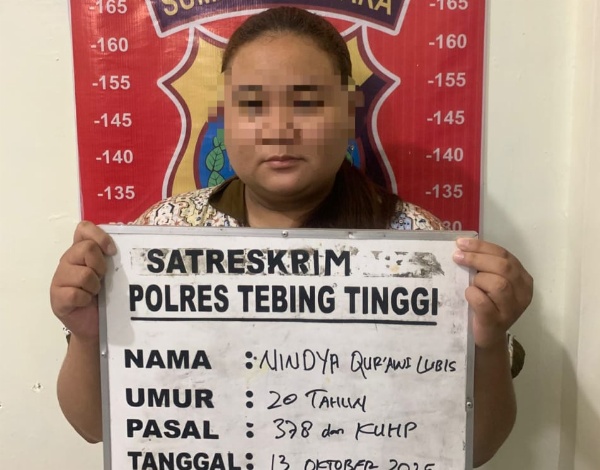 SUMATERA UTARA
-165 -165
-160 -160
-155 -155
-150 -150
-145 -145
-140 -140
-135 -135
30
SATRESKRIM
POLRES TEBING TINGGI
NAMA : NINDYA QUR'AWI LUBIS
UMUR : 20 TAHUN
PASAL : 378 dan KUHP
TANGGAL : 13 OKTOBER 2025